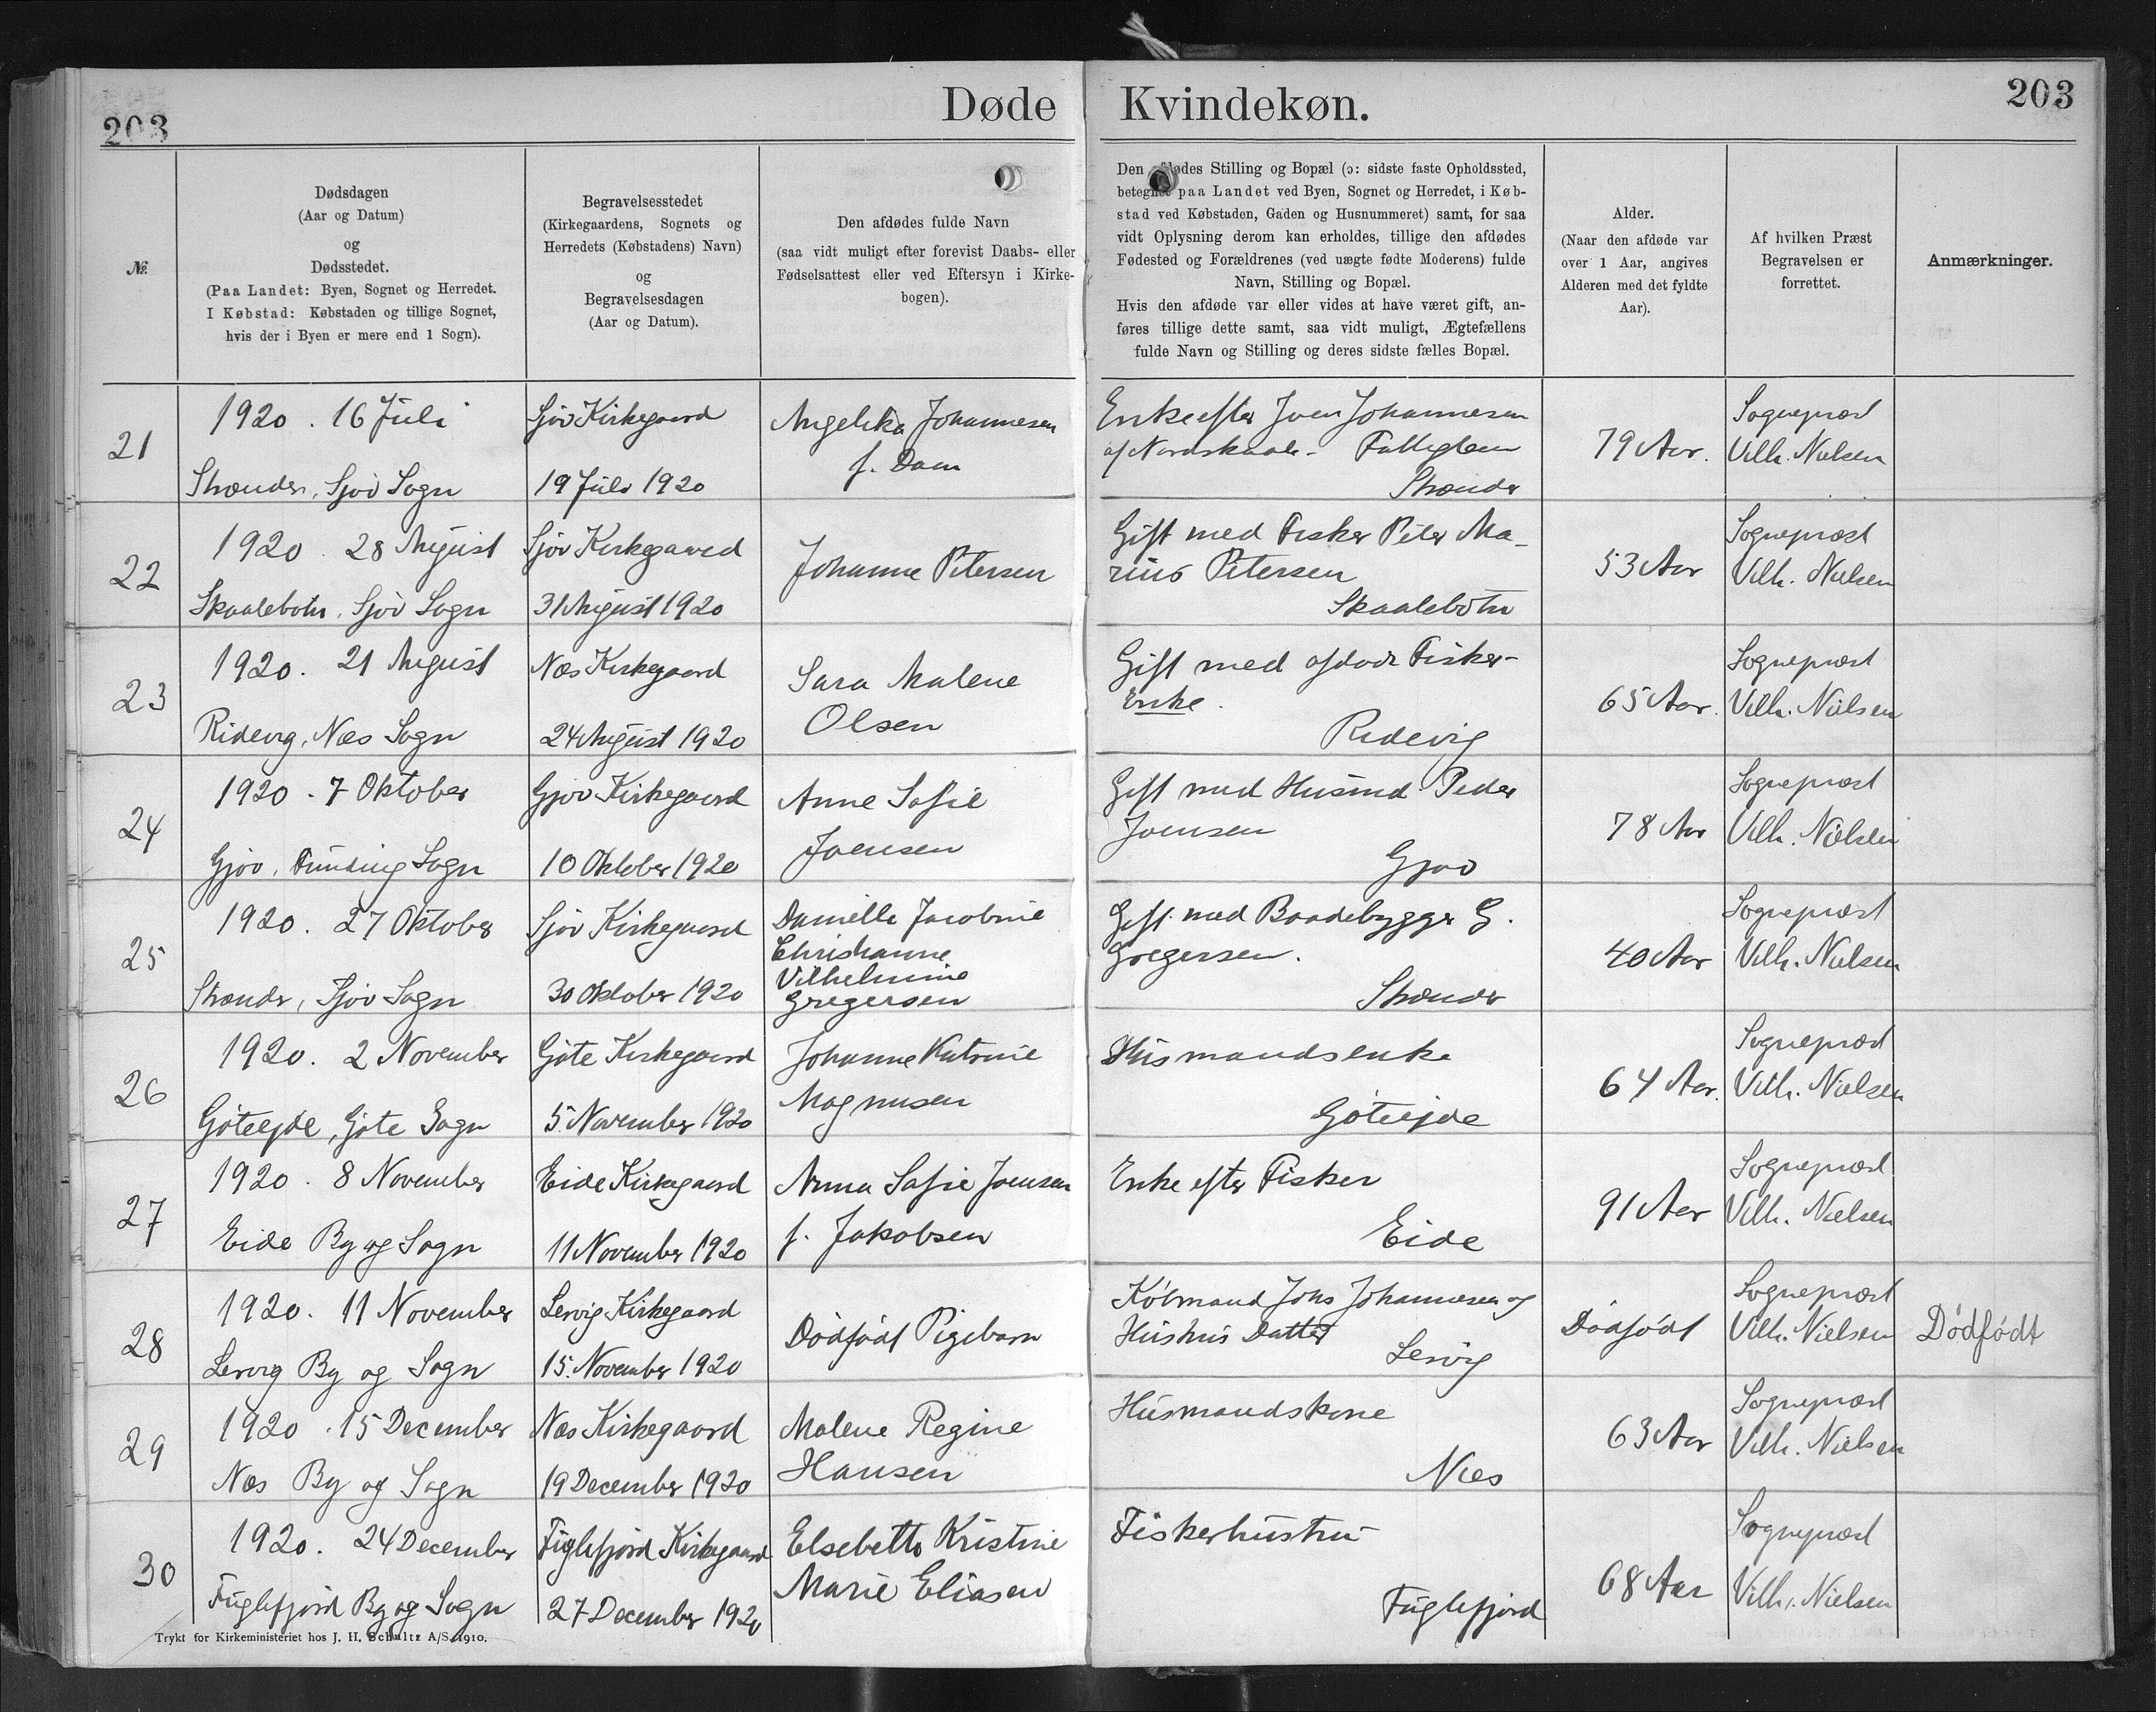 203
Døde Kvindekøn.
203
№.
Dødsdagen
(Aar og Datum)
og
Dødsstedet.
(Paa Landet: Byen, Sognet og Herredet.
I Købstad: Købstaden og tillige Sognet,
hvis der i Byen er mere end 1 Sogn).
Begravelsesstedet
(Kirkegaardens, Sognets og
Herredets (Købstadens) Navn)
og
Begravelsesdagen
(Aar og Datum).
Den afdødes fulde Navn
(saa vidt muligt efter forevist Daabs- eller
Fødselsattest eller ved Eftersyn i Kirke-
bogen).
Den afdødes Stilling og Bopæl (ɔ: sidste faste Opholdssted,
betegnet paa Landet ved Byen, Sognet og Herredet, i Køb-
stad ved Købstaden, Gaden og Husnummeret) samt, for saa
vidt Oplysning derom kan erholdes, tillige den afdødes
Fødested og Forældrenes (ved uægte fødte Moderens) fulde
Navn, Stilling og Bopæl.
Hvis den afdøde var eller vides at have været gift, an-
føres tillige dette samt, saa vidt muligt, Ægtefællens
fulde Navn og Stilling og deres sidste fælles Bopæl.
Alder.
(Naar den afdøde var
over 1 Aar, angives
Alderen med det fyldte
Aar).
Af hvilken Præst
Begravelsen er
forrettet.
Anmærkninger.
21
1920. 16 Juli
Strænder, Sjov Sogn
Sjov Kirkegaard
19 Juli 1920
Angelika Johannesen
f. Dam
Enke efter Joen Johannesen
af Nordskaale -
Strænder
79 Aar.
Sognepræst
Vilh. Nielsen
22
1920. 28 August
Skaalebotn, Sjov Sogn
Sjov Kirkegaard
31 August 1920
Johanne Petersen
Gift med Fisker Peter Ma-
rius Petersen
Skaalebotn
53 Aar
Sognepræst
Vilh. Nielsen
23
1920. 21 August
Ridevig, Næs Sogn
Næs Kirkegaard
24 August 1920
Sara Malene
Olsen
Gift med afdøde Fisker-
Enke.
Ridevig
65 Aar.
Sognepræst
Vilh. Nielsen
24
1920. 7 Oktober
Gjov, Funding Sogn
Gjov Kirkegaard
10 Oktober 1920
Anne Sofie
Joensen
Gift med Husmd Peder
Joensen
Gjov
78 Aar
Sognepræst
Vilh. Nielsen
25
1920. 27 Oktober
Strænder, Sjov Sogn
Sjov Kirkegaard
30 Oktober 1920
Danielle Jacobine
Christianne
Vilhelmine
Gregersen
Gift med Baadebygger G.
Gregersen.
Strænder
40 Aar
Sognepræst
Vilh. Nielsen
26
1920. 2 November
Göteejde, Göte Sogn
Göte Kirkegaard
5. November 1920
Johanne Katrine
Magnusen
Husmandsenke
Göteejde
64 Aar.
Sognepræst
Vilh. Nielsen
27
1920. 8 November
Eide By og Sogn
Eide Kirkegaard
11 November 1920
Anna Sofie Joensen
f. Jakobsen
Enke efter Fisker
Eide
91 Aar
Sognepræst
Vilh. Nielsen
28
1920. 11 November
Lervig By og Sogn
Lervig Kirkegaard
15. November 1920
Dödfödt Pigebarn
Kôbmand Johs Johannesen og
Hustrus Datter
Lervig
Dödfödt
Sognepræst
Vilh. Nielsen
Dödfödt
29
1920. 15 December
Næs By og Sogn
Næs Kirkegaard
19 December 1920
Malene Regine
Hansen
Husmandskone
Næs
63 Aar
Sognepræst
Vilh. Nielsen
30
1920. 24 December
Fuglefjord By og Sogn
Fuglefjord Kirkegaard
27 December 1920
Elsebetta Kristine
Marie Eliasen
Fiskerhustru
Fuglefjord
68 Aar
Sognepræst
Vilh. Nielsen
Trykt for Kirkeministeriet hos J. H. Schultz A/S. 1910.